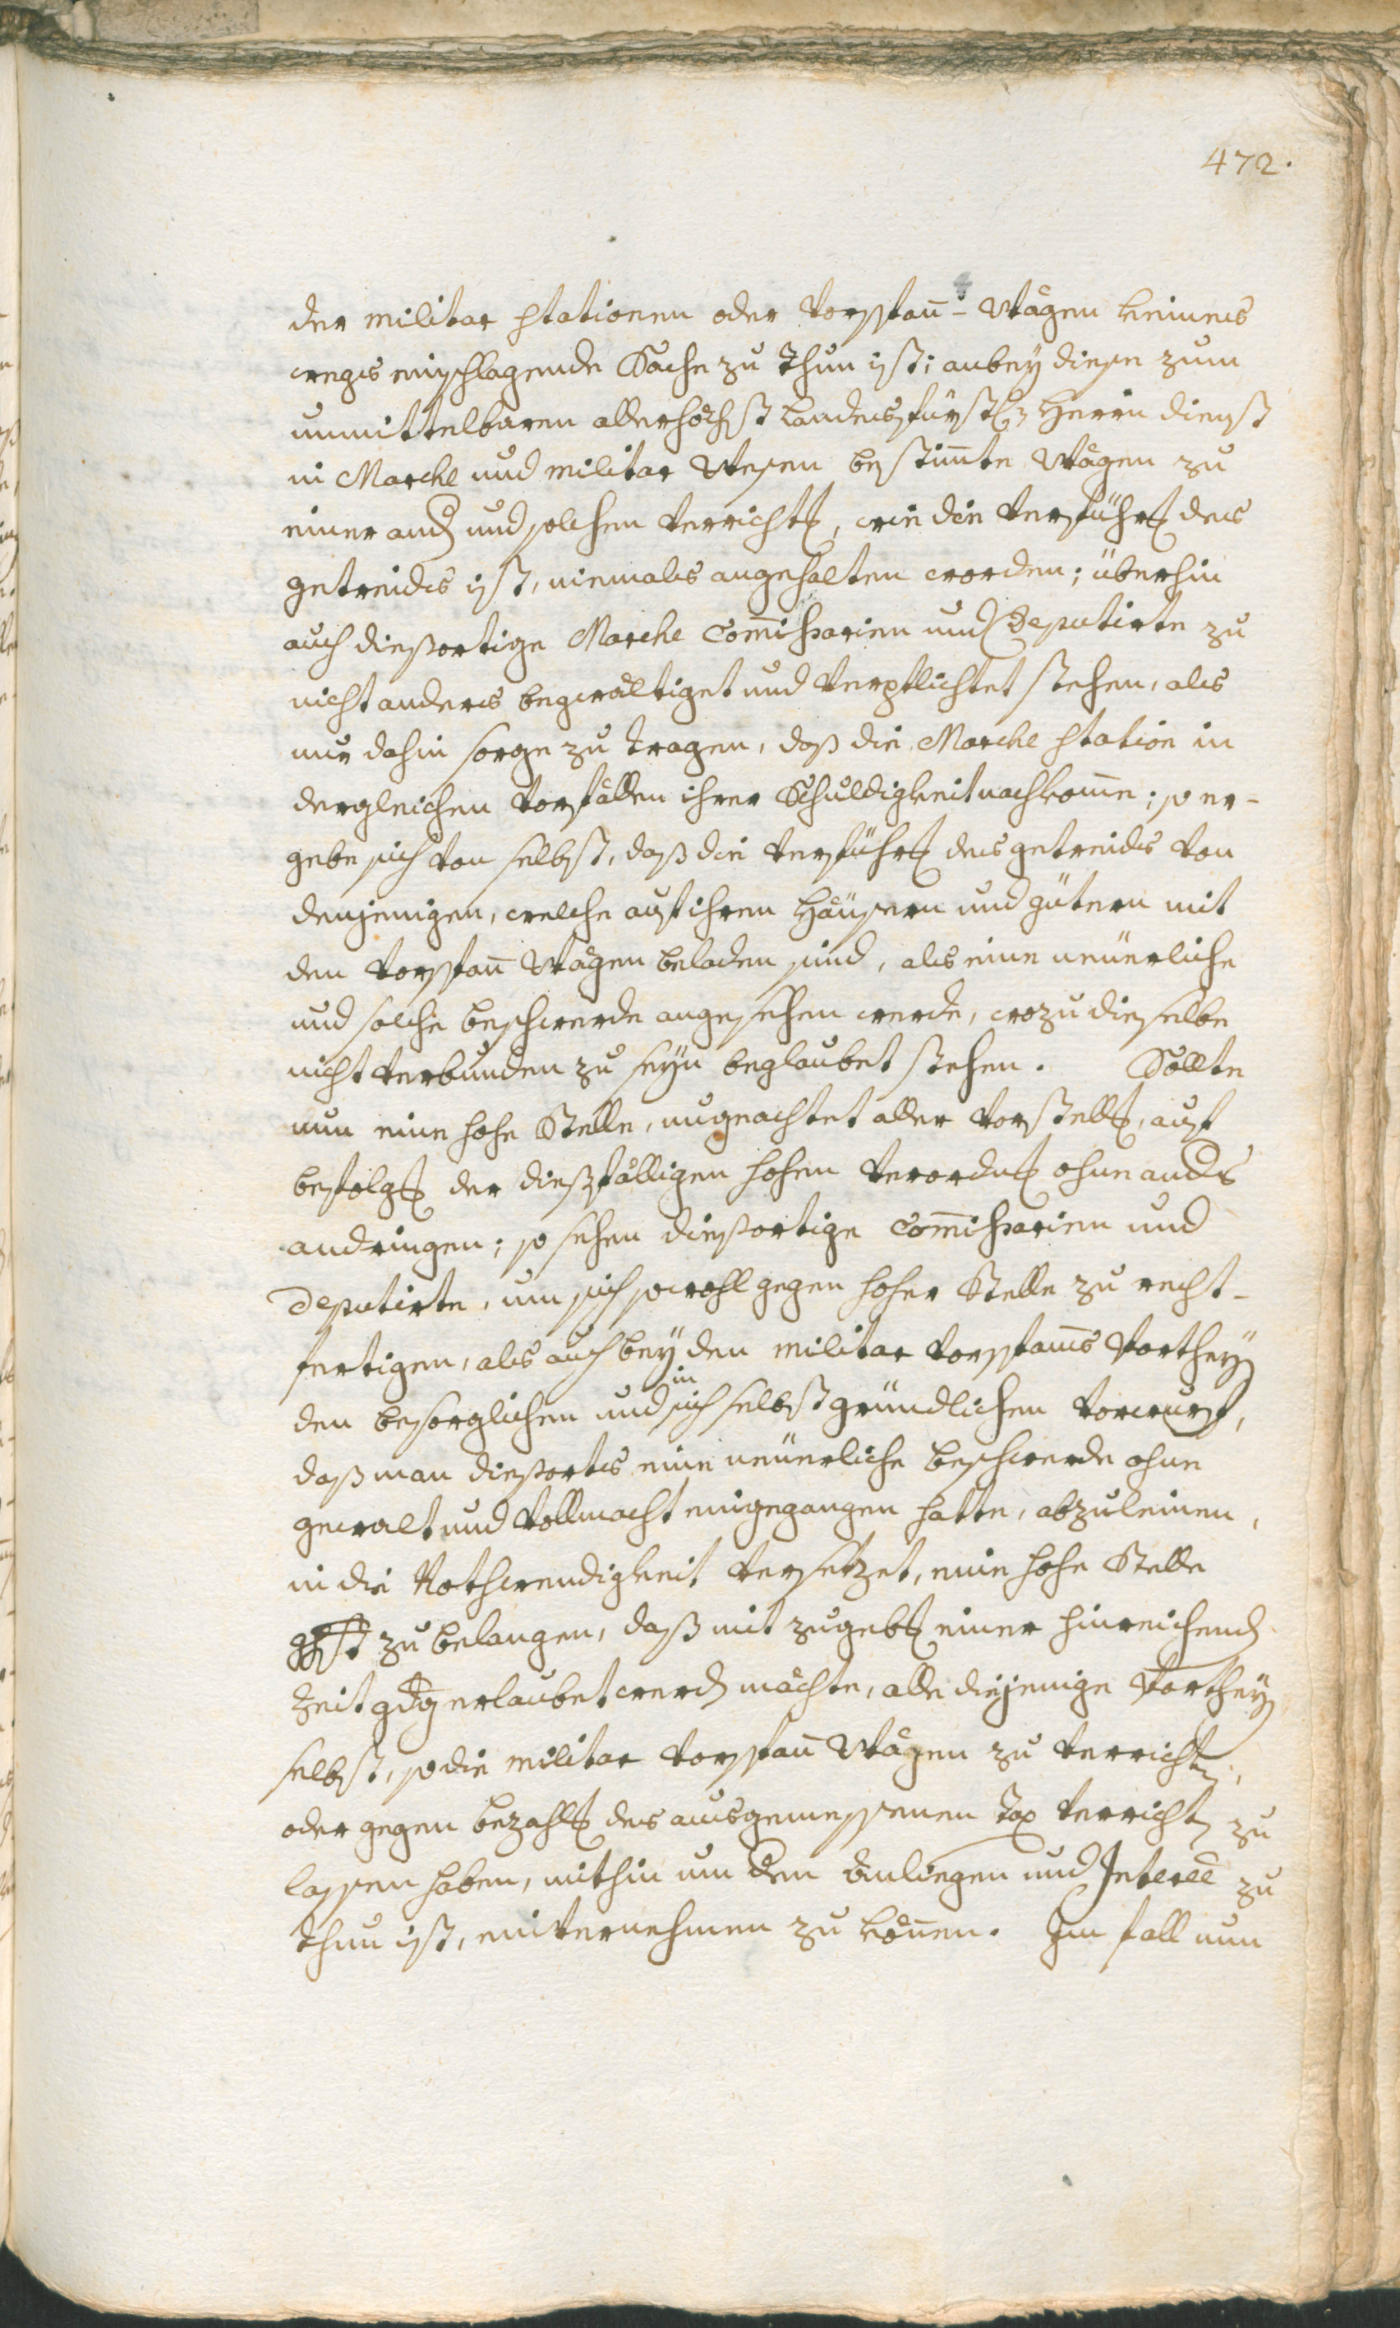 472.
der militar stationen oder Vorspan̄-Wägen keines
wegs einschlagende Sache zu Thun ist; anbey diese zum
unmittelbaren allerhöchst Landesfürstl. Herrn dienst
in Marche und militar Wesen bestim̄te Wägen zu
einer and und solchen Verricht, wie die Verführ des
getreides ist, niemals angehalten worden; überhin
auch diesortige Marche Com̄issarien und Deputirte zu
nicht anders begwältiget und Verpflichtet stehen, als
nur dahin sorge zu tragen, daß die Marche station in
dergleichen Vorfällen ihrer Schuldigkeit nachkom̄e; so er-
gebe sich von selbst, daß die Verführ des getreides von
denjenigen, welche auf ihren Häusern und gütern mit
den Vorspan̄ Wägen beladen sind, als eine neüerliche
und solche beschwerde angesehen werde, wozu dieselbe
nicht verbunden zu seyn beglaubet stehen. Sollte
nun eine hohe Stelle, ungeachtet aller Vorstell, auf
befolg der diesfälligen hohen Verordn ohne anders
andringen; so sehen diesortige Com̄issarien und
Deputirte, um sich sowohl gegen hoher Stelle zu recht-
fertigen, als auch bey den militar Vorspan̄s Parthey
den besorglichen und in sich selbst gründlichen Vorwurf,
daß man diesorts eine neüerliche beschwerde ohne
gewalt und Vollmacht eingegangen hatte, abzuleinen,
in die Nothwendigkeit versetzet, eine hohe Stelle
ghst zu belangen, daß mit zugeb einer hinreichend
Zeit gdg erlaubet werd möchte, alle diejenige Parthey
selbst, so die militar Vorspan̄ Wägen zu verricht,
oder gegen bezahl des ausgemessenen Tax verricht zu
lassen haben, mithin um dem Anliegen und Interee zu
thun ist, einvernehmen zu kön̄en. Im fall nun